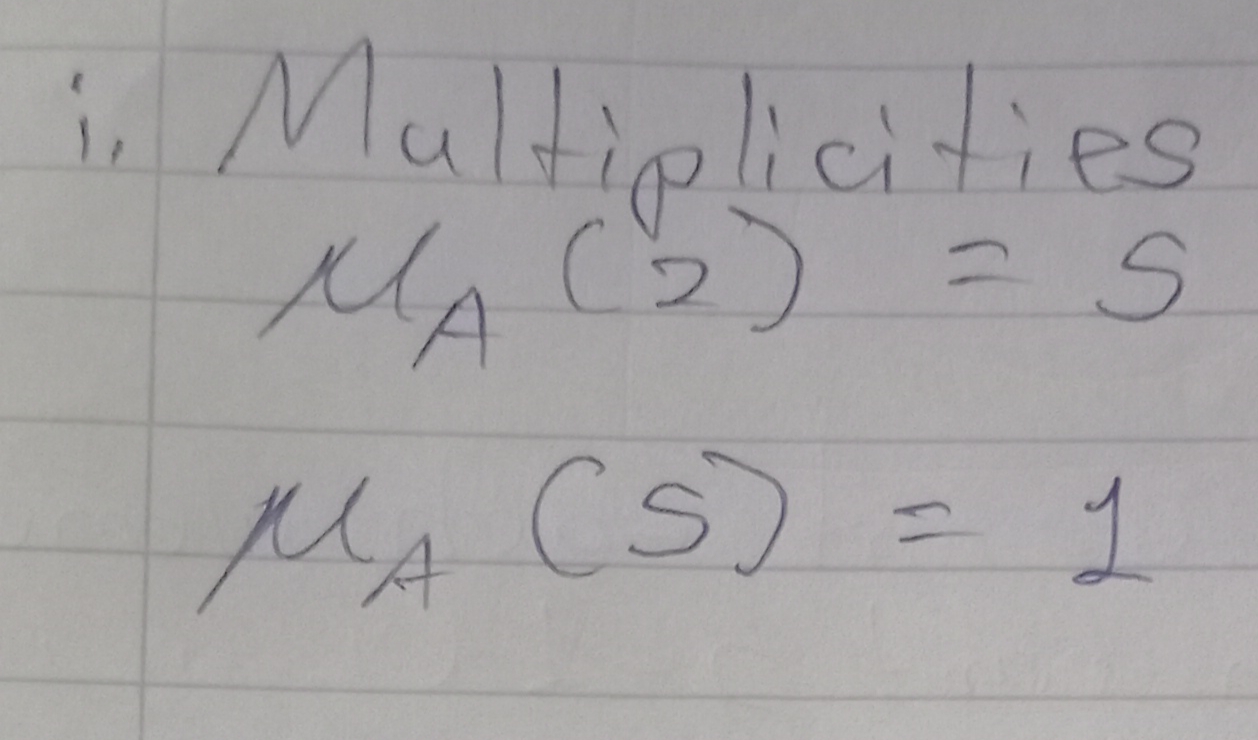 i. Multiplicities
μ_A (2) = 5
μ_A (5) = 1